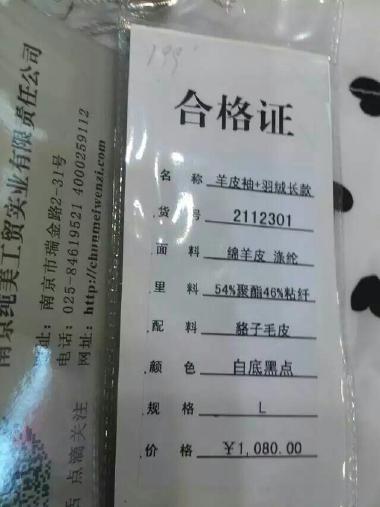 199
合格证
名 称 羊皮袖+羽绒长款
货 号 2112301
面 料 绵羊皮 涤纶
里 料 54%聚酯46%粘纤
配 料 貉子毛皮
颜 色 白底黑点
规 格 L
价 格 ¥1,080.00
南京纯美工贸实业有限责任公司
地址: 南京市瑞金路2-31号
电话: 025-84619521 4000259112
网址: http://chunmeiwenzi.com
点滴关注